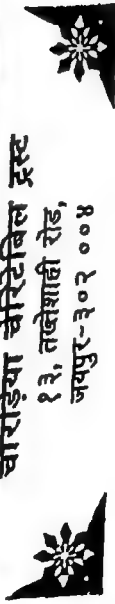 चोरड़िया चेरिटेबिल ट्रस्ट
१३, तख्तेशाही रोड,
जयपुर-३०२ ००४